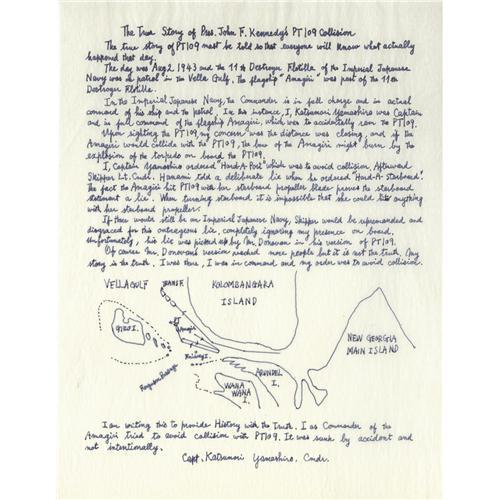 The True Story of Pres. John F. Kennedy's PT109 Collision
The true story of PT109 must be told so that everyone will know what actually
happened that day.
The day was Aug 2 1943 and the 11th Destroyer Flotilla of the Imperial Japanese
Navy was on patrol in the Vella Gulf. The flagship "Amagiri" was part of the 11th
Destroyer Flotilla.
In the Imperial Japanese Navy, the Commander is in full charge and in actual
command of his ship and the patrol. In this instance, I, Katsumori Yamashiro was Captain
and in full command of the flagship Amagiri, which was to accidentally ram the PT109.
Upon sighting the PT109 my concern was the distance was closing, and if the
Amagiri would collide with the PT109, the bow of the Amagiri might burn by the
explosion of the torpedo on board the PT109.
I, Captain Yamashiro ordered "Hard-A-Port" which was to avoid collision. Afterward
Skipper Lt. Cmdr. Hanami told a deliberate lie when he ordered "Hard-A-Starboard".
The fact the Amagiri hit PT109 with her starboard propeller blade proves the starboard
statement a lie. When turning starboard it is impossible that she could hit anything
with her starboard propeller.
If there would still be an Imperial Japanese Navy, Skipper would be reprimanded and
disgraced for this outrageous lie, completely ignoring my presence on board.
Unfortunately, his lie was picked up by Mr. Donovan in his version of PT109.
Of course Mr. Donovan's version reached more people but it is not the truth. My
story is the truth. I was there, I was in command and my order was to avoid collision.
VELLA GULF
KOLOMBANGARA
ISLAND
GIZO I.
Amagiri
NEW GEORGIA
MAIN ISLAND
Ferguson Passage
ARUNDEL
I.
WANA
WANA
I.
I am writing this to provide History with the Truth. I as Commander of the
Amagiri tried to avoid collision with PT109. It was sunk by accident and
not intentionally.
Capt. Katsumori Yamashiro, Cmdr.